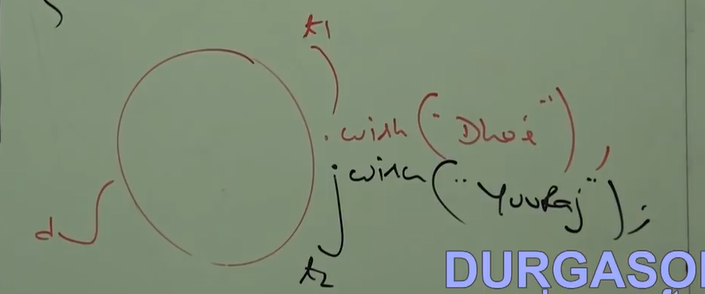 t1
.wish("Dhoi");
.wish("Yuvraj");
d
t2
DURGASO